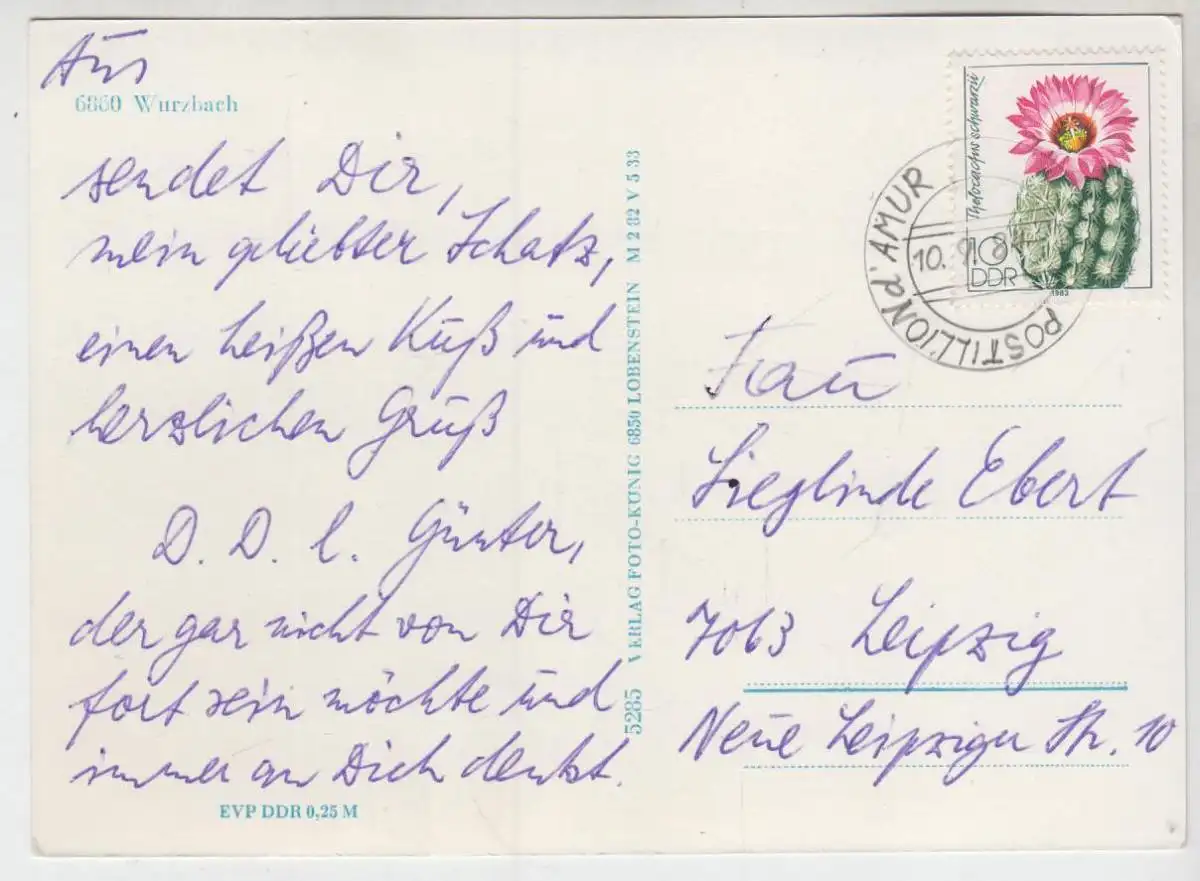 Aus
6860 Wurzbach
sendet Dir,
mein geliebter Schatz,
einen heißen Kuß und
herzlichen Gruß
D. D. l. Günter,
der gar nicht von Dir
fort sein möchte und
immer an Dich denkt.
EVP DDR 0,25 M
5285 VERLAG FOTO-KÖNIG 6850 LOBENSTEIN M 2 82 V 5 33
Thelocactus schwarzii
10
DDR
1983
POSTILLION d'AMUR
10. 9. 8
Frau
Sieglinde Ebert
7063 Leipzig
Neue Leipziger Str. 10